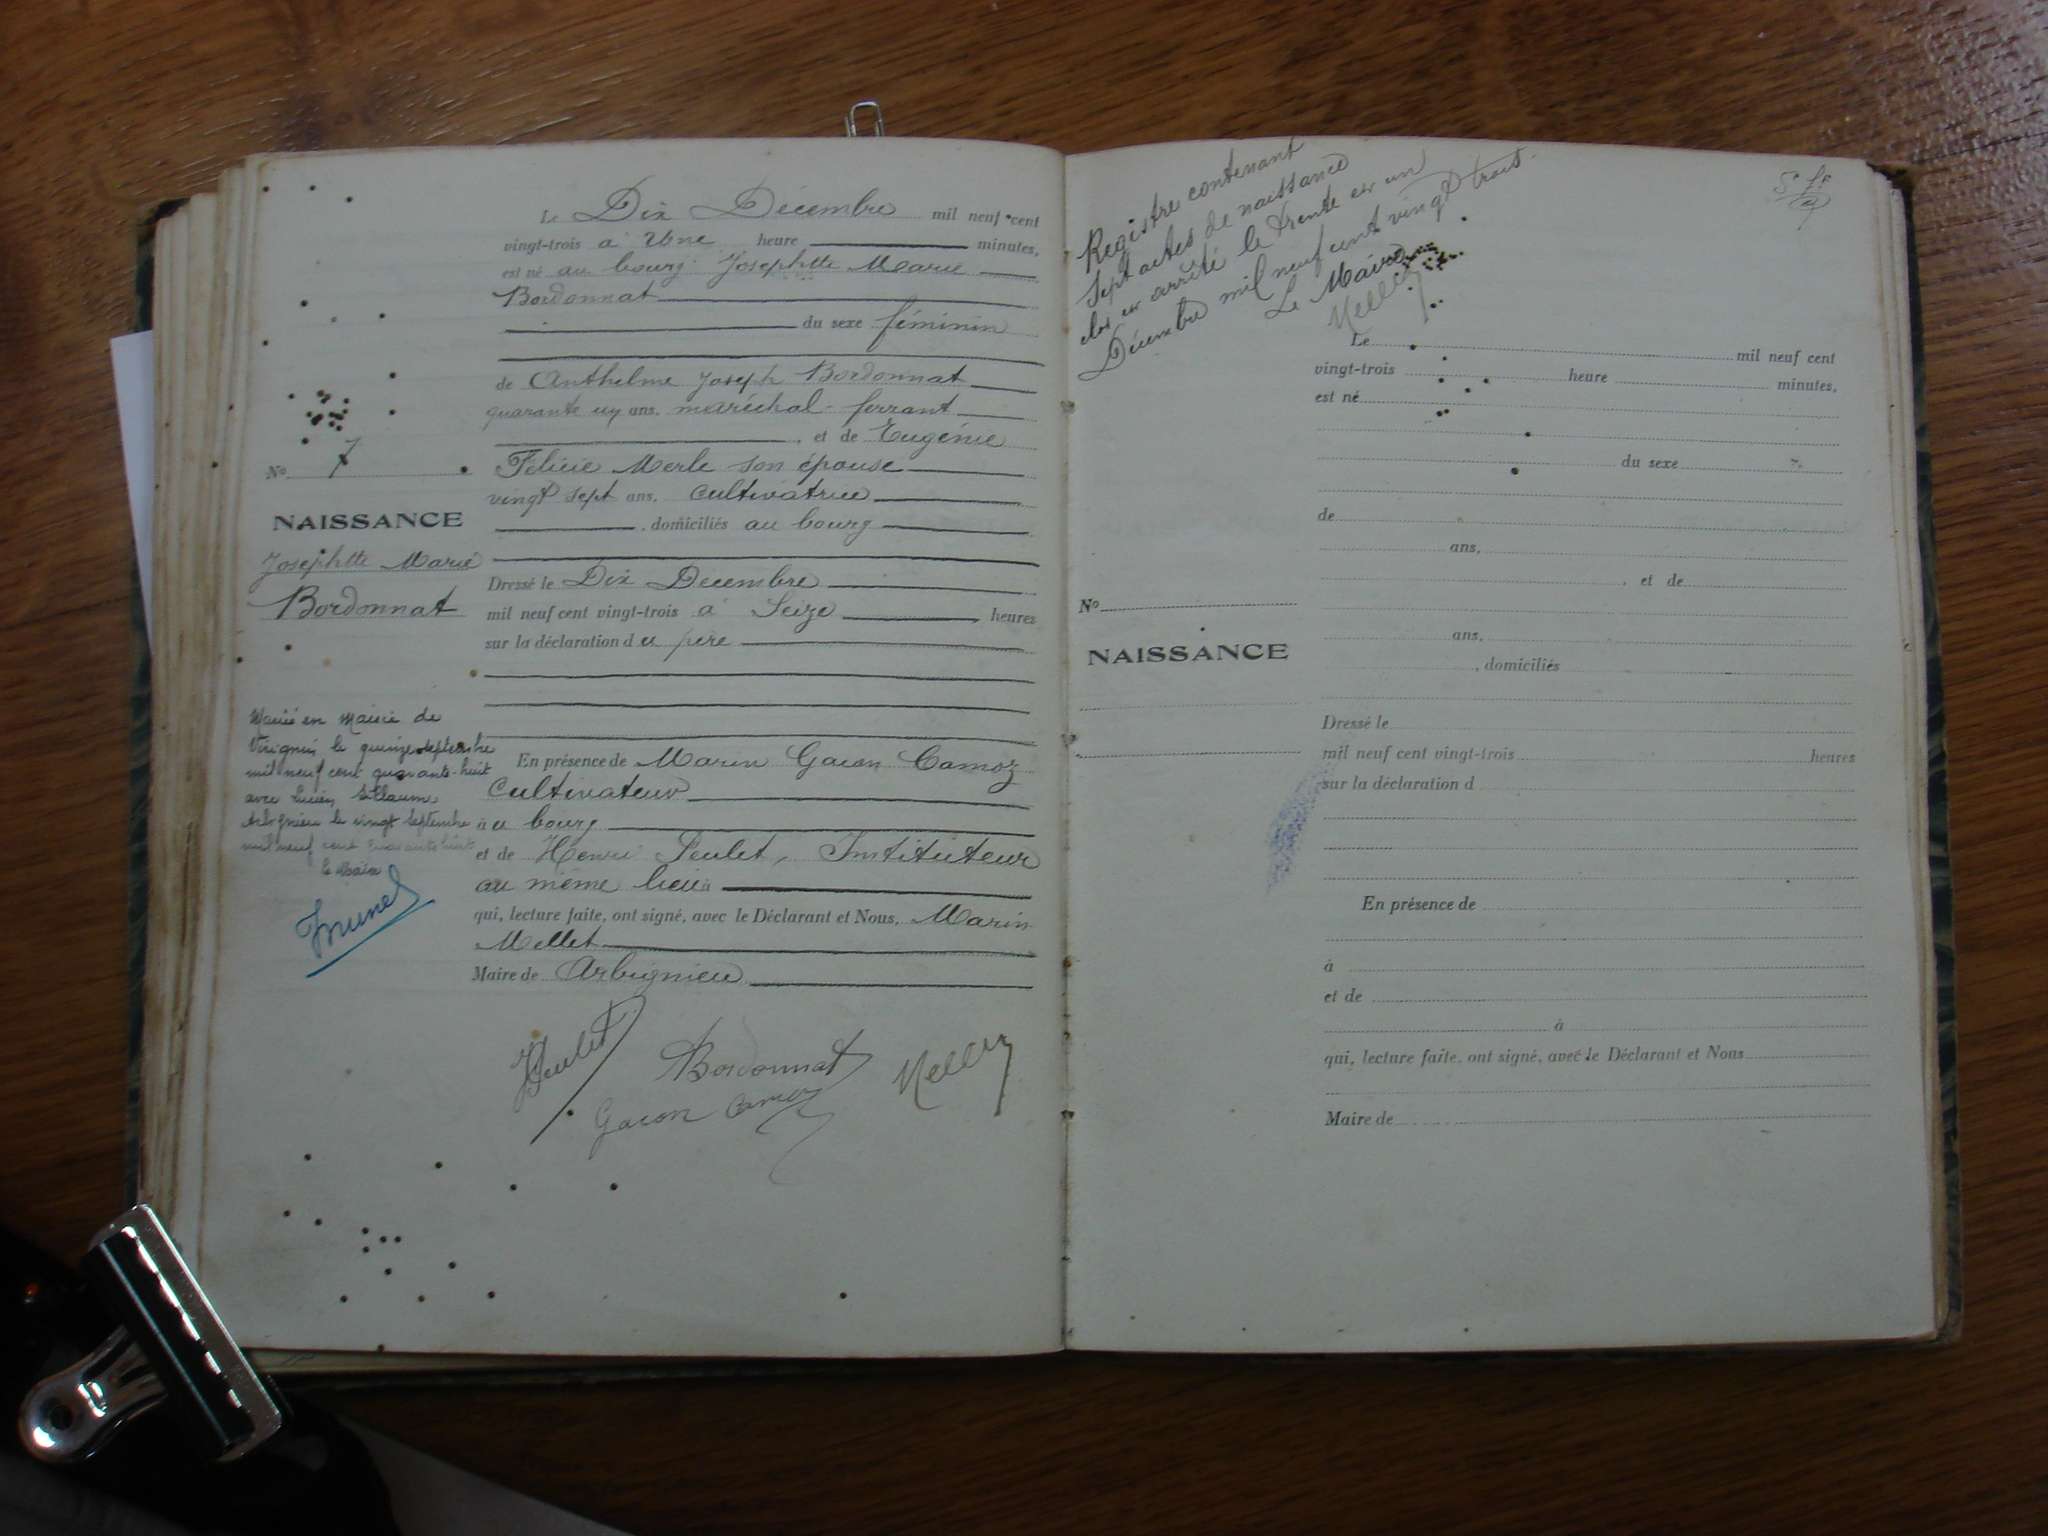 Le Dix Décembre mil neuf cent
vingt-trois à Une heure minutes,
est né au bourg Josephtte Marie
Bordonnat
du sexe féminin
de Anthelme Joseph Bordonnat
quarante un ans, maréchal-ferrant
, et de Eugénie
Félicie Merle son épouse
vingt sept ans, cultivatrice
, domiciliés au bourg
No 7
NAISSANCE
Josephtte Marie
Bordonnat
Dressé le Dix Décembre
mil neuf cent vingt-trois à Seize heures
sur la déclaration du père
Mariée en Mairie de
Virignin le quinze septembre
mil neuf cent quarante-huit
avec Lucien
Arbignieu le vingt septembre
mil neuf cent quarante huit
le Maire
En présence de Marin Gacon Camoz
Cultivateur
au bourg
et de Henri Peulet, Instituteur
au même lieu à
qui, lecture faite, ont signé, avec le Déclarant et Nous, Marin
Mellet
Maire de Arbignieu
HPeulet
Bordonnat
Mellet
Gacon Camoz
Registre contenant
Sept actes de naissance
clos et arrêté le trente et un
Décembre mil neuf cent vingt trois.
Le Maire
Mellet
Le mil neuf cent
vingt-trois heure minutes,
est né
du sexe
de
ans,
, et de
No
ans,
NAISSANCE
, domiciliés
Dressé le
mil neuf cent vingt-trois heures
sur la déclaration d
En présence de
à
et de
à
qui, lecture faite, ont signé, avec le Déclarant et Nous
Maire de